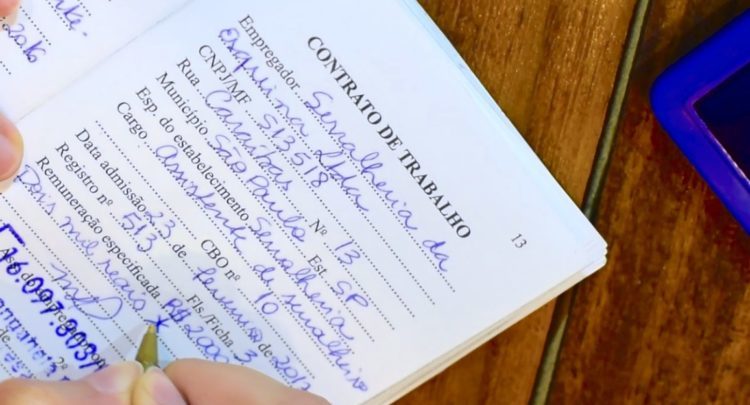 2016
13
CONTRATO DE TRABALHO
Empregador Serralheria da
esquina Ltda
CNPJ/MF 513518
Rua Caraíbas Nº 13
Município São Paulo Est. SP
Esp. do estabelecimento Serralheria
Cargo assistente de serralheiro
CBO nº 10
Data admissão 23 de fevereiro de 201
Registro nº 513 Fls./Ficha 3
Remuneração especificada R$ 200
Dois mil reais
16.097.803/
2º